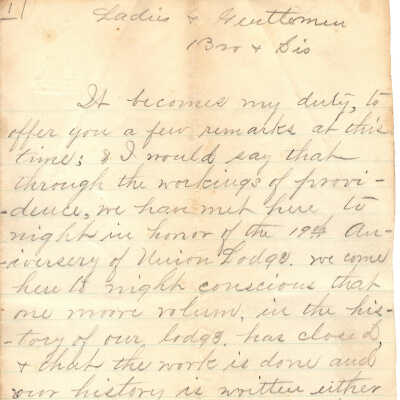 1
Ladies & Gentlemen
Bro & Sis
It becomes my duty, to
offer you a few remarks at this
time; & I would say that
through the workings of provi-
-dence, we have met here to
night in honor of the 19th An-
-iversery of Union Lodge. we come
here to night conscious that
one moore volum, in the his-
-tory of our, lodge. has closed,
& that the work is done and
our history is written either